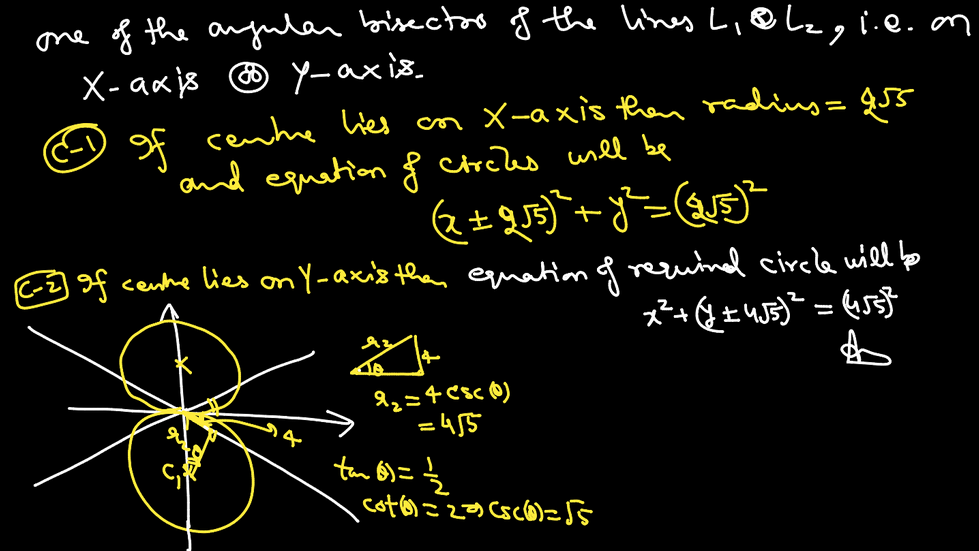 one of the angular bisector of the lines L₁ & L₂, i.e. on
X-axis or Y-axis.
C-1 If centre lies on X-axis then radius = 2√5
and equation of circles will be
(x ± 2√5)² + y² = (2√5)²
C-2 If centre lies on Y-axis then equation of required circle will be
x² + (y ± 4√5)² = (4√5)²
r₂ 4
θ
r₂ = 4 csc(θ)
= 4√5
4
r₂
θ
C₁
tan(θ) = 1/2
cot(θ) = 2 ⇒ csc(θ) = √5